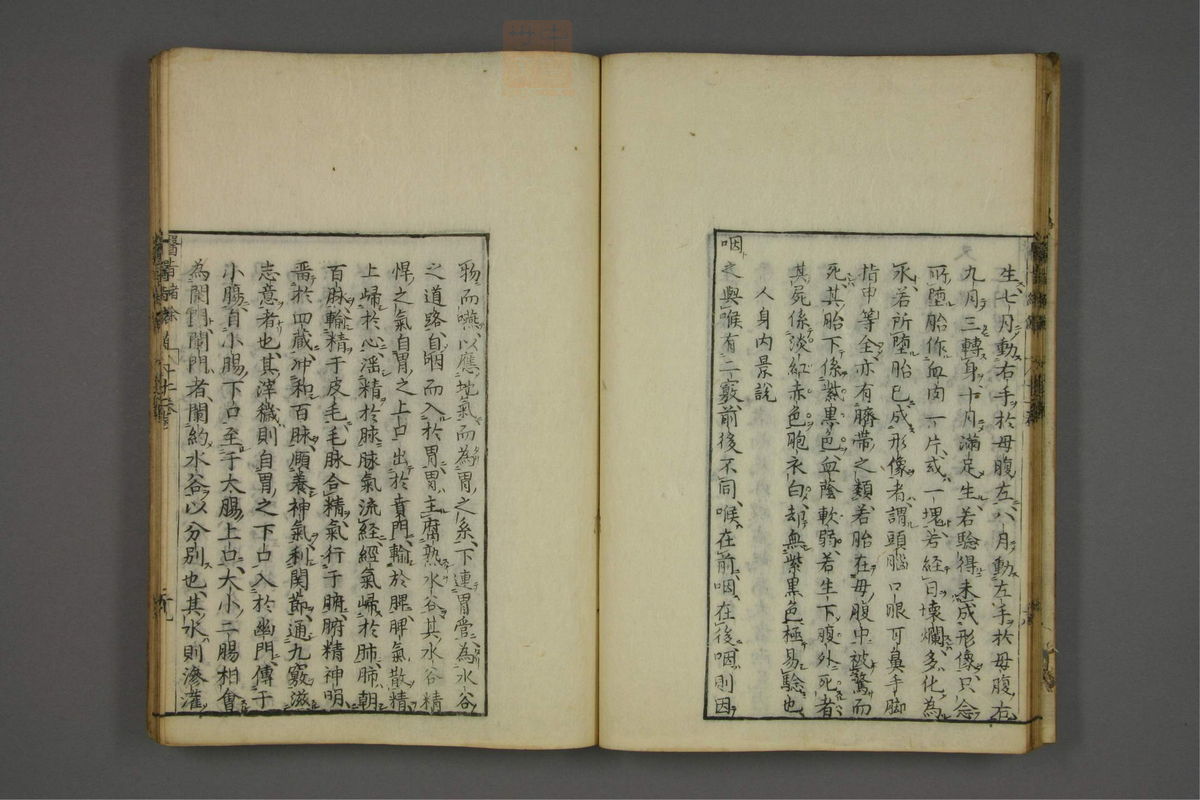 生七月動右手於母腹左八月動左手於母腹右
九月三轉身十月滿足生若驗得未成形像只念
所墮胎作血肉一片或一塊若経日壞爛多化為
水若所墮胎已成形像者謂頭腦口眼耳鼻手脚
指甲等全亦有臍帶之類若胎在母腹中被驚而
死其胎下係紫黒色血蔭軟弱若生下腹外死者
其屍係淡紅赤色胞衣白却無紫黒色極易驗也
人身内景說
咽之與喉有二竅前後不同喉在前咽在後咽則因
物而嚥以應地氣而為胃之系下連胃管為水谷
之道路自咽而入於胃胃主腐熟水谷其水谷精
悍之氣自胃之上口出於賁門輸於脾脾氣散精
上歸於心淫精於脉脉氣流経經氣歸於肺肺朝
百脉輸精于皮毛毛脉合精氣行于腑腑精神明
焉於四藏冲和百脉頤養神氣利関節通九竅滋
志意者也其滓穢則自胃之下口入於幽門傳于
小腸自小腸下口至于大腸上口大小二腸相會
為闌門闌門者闌約水谷以分別也其水則滲灌